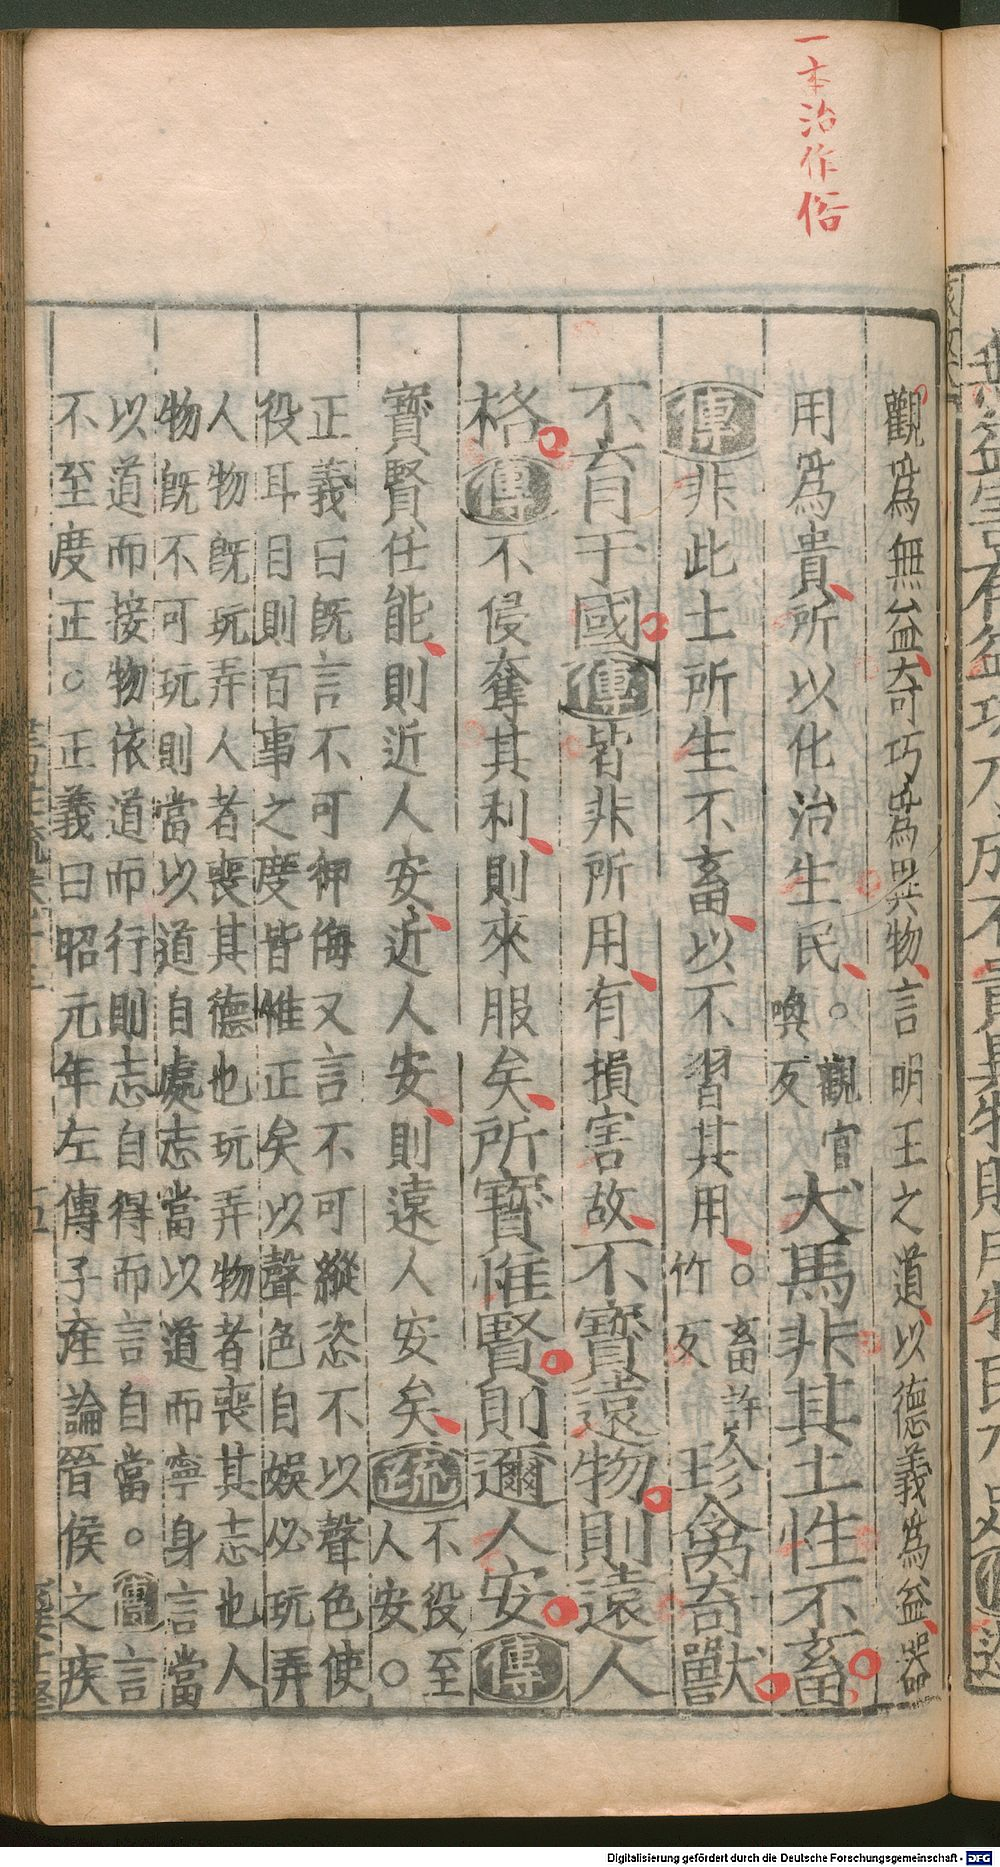 一本治作俗
觀爲無益奇巧爲異物言明王之道以德義爲益器
用爲貴所以化治生民。觀官
喚反
犬馬非其土性不畜
傳非此土所生不畜以不習其用。畜許
竹反
珍禽奇獸
不育于國傳皆非所用有損害故不寶遠物則遠人
格傳不侵奪其利則來服矣所寶惟賢則邇人安傳
寶賢任能則近人安近人安則遠人安矣疏不役至
人安。
正義曰旣言不可狎侮又言不可縱恣不以聲色使
役耳目則百事之度皆惟正矣以聲色自娛必玩弄
人物旣玩弄人者喪其德也玩弄物者喪其志也人
物旣不可玩則當以道自處志當以道而寧身言當
以道而接物依道而行則志自得而言自當。傳言
不至度正。正義曰昭元年左傳子產論晉侯之疾
Digitalisierung gefördert durch die Deutsche Forschungsgemeinschaft - DFG